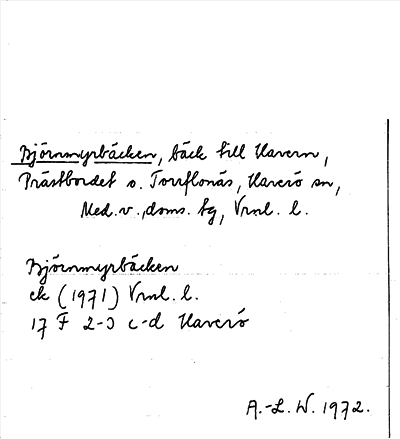 Björnmyrbäcken, bäck till Havern,
Prästbordet o. Torrflonäs, Haverö sn,
Med. v., doms. tg, Vrnl. l.
Björnmyrbäcken
ek (1971) Vrnl. l.
17 F 2-3 c-d Haverö
A.-L. W. 1972.